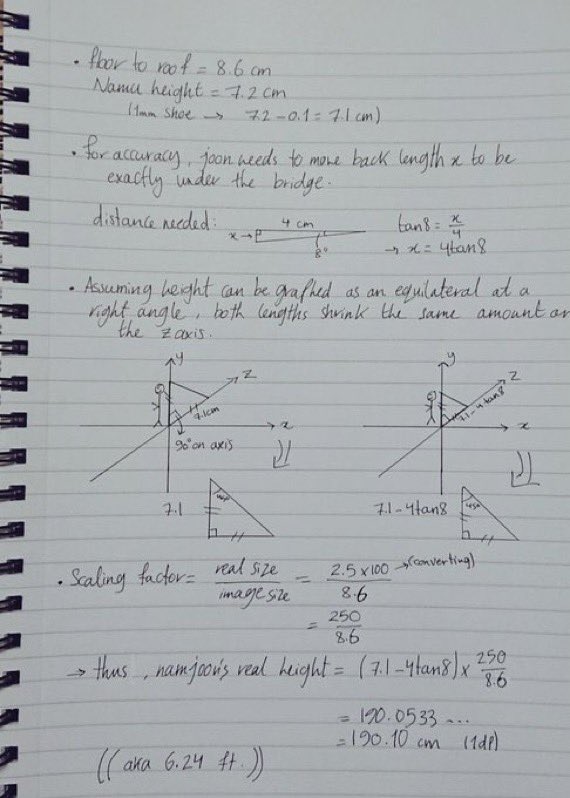 • floor to roof = 8.6 cm
Namu height = 7.2 cm
(1mm shoe → 7.2 - 0.1 = 7.1 cm)
• for accuracy, joon needs to move back length x to be
exactly under the bridge.
distance needed:
4 cm
x→
8°
tan8 = x/4
→ x = 4tan8
• Assuming height can be graphed as an equilateral at a
right angle, both lengths shrink the same amount on
the z axis.
y
z
7.1cm
x
90° on axis
7.1
45°
y
z
7.1-4tan8
x
7.1-4tan8
45°
• Scaling factor = real size / image size = 2.5 x 100 / 8.6 → (converting)
= 250 / 8.6
→ thus, namjoon's real height = (7.1-4tan8) x 250 / 8.6
= 190.0533 ...
= 190.10 cm (1dp)
((aka 6.24 ft.))